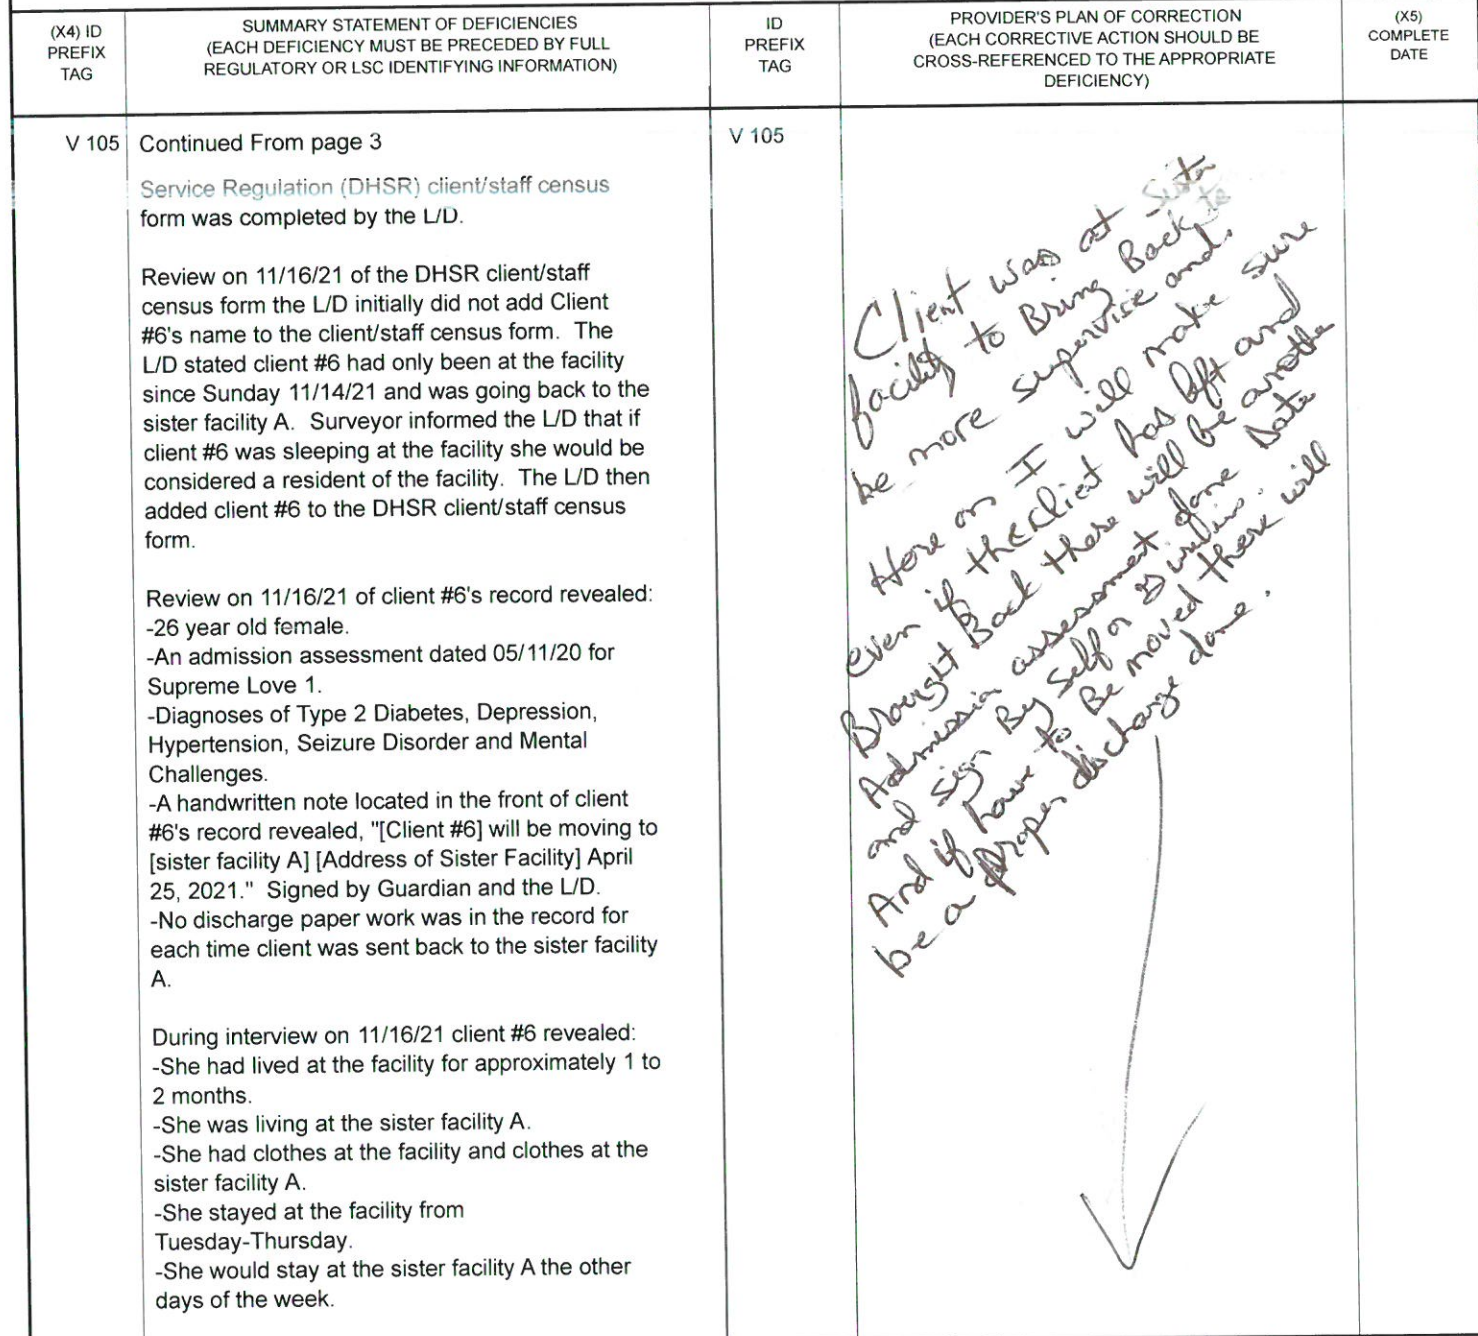 (X4) ID
PREFIX
TAG
SUMMARY STATEMENT OF DEFICIENCIES
(EACH DEFICIENCY MUST BE PRECEDED BY FULL
REGULATORY OR LSC IDENTIFYING INFORMATION)
ID
PREFIX
TAG
PROVIDER'S PLAN OF CORRECTION
(EACH CORRECTIVE ACTION SHOULD BE
CROSS-REFERENCED TO THE APPROPRIATE
DEFICIENCY)
(X5)
COMPLETE
DATE
V 105
Continued From page 3
Service Regulation (DHSR) client/staff census
form was completed by the L/D.
Review on 11/16/21 of the DHSR client/staff
census form the L/D initially did not add Client
#6's name to the client/staff census form. The
L/D stated client #6 had only been at the facility
since Sunday 11/14/21 and was going back to the
sister facility A. Surveyor informed the L/D that if
client #6 was sleeping at the facility she would be
considered a resident of the facility. The L/D then
added client #6 to the DHSR client/staff census
form.
Review on 11/16/21 of client #6's record revealed:
-26 year old female.
-An admission assessment dated 05/11/20 for
Supreme Love 1.
-Diagnoses of Type 2 Diabetes, Depression,
Hypertension, Seizure Disorder and Mental
Challenges.
-A handwritten note located in the front of client
#6's record revealed, "[Client #6] will be moving to
[sister facility A] [Address of Sister Facility] April
25, 2021." Signed by Guardian and the L/D.
-No discharge paper work was in the record for
each time client was sent back to the sister facility
A.
During interview on 11/16/21 client #6 revealed:
-She had lived at the facility for approximately 1 to
2 months.
-She was living at the sister facility A.
-She had clothes at the facility and clothes at the
sister facility A.
-She stayed at the facility from
Tuesday-Thursday.
-She would stay at the sister facility A the other
days of the week.
V 105
Client was at Sister
facility to Bring Back to
be more supervise and
Here on I will make sure
even if the Client has left and
Brought Back there will be another
Admission assessment done Date
and sign By Self or
And if have to Be moved there will
be a proper discharge done.